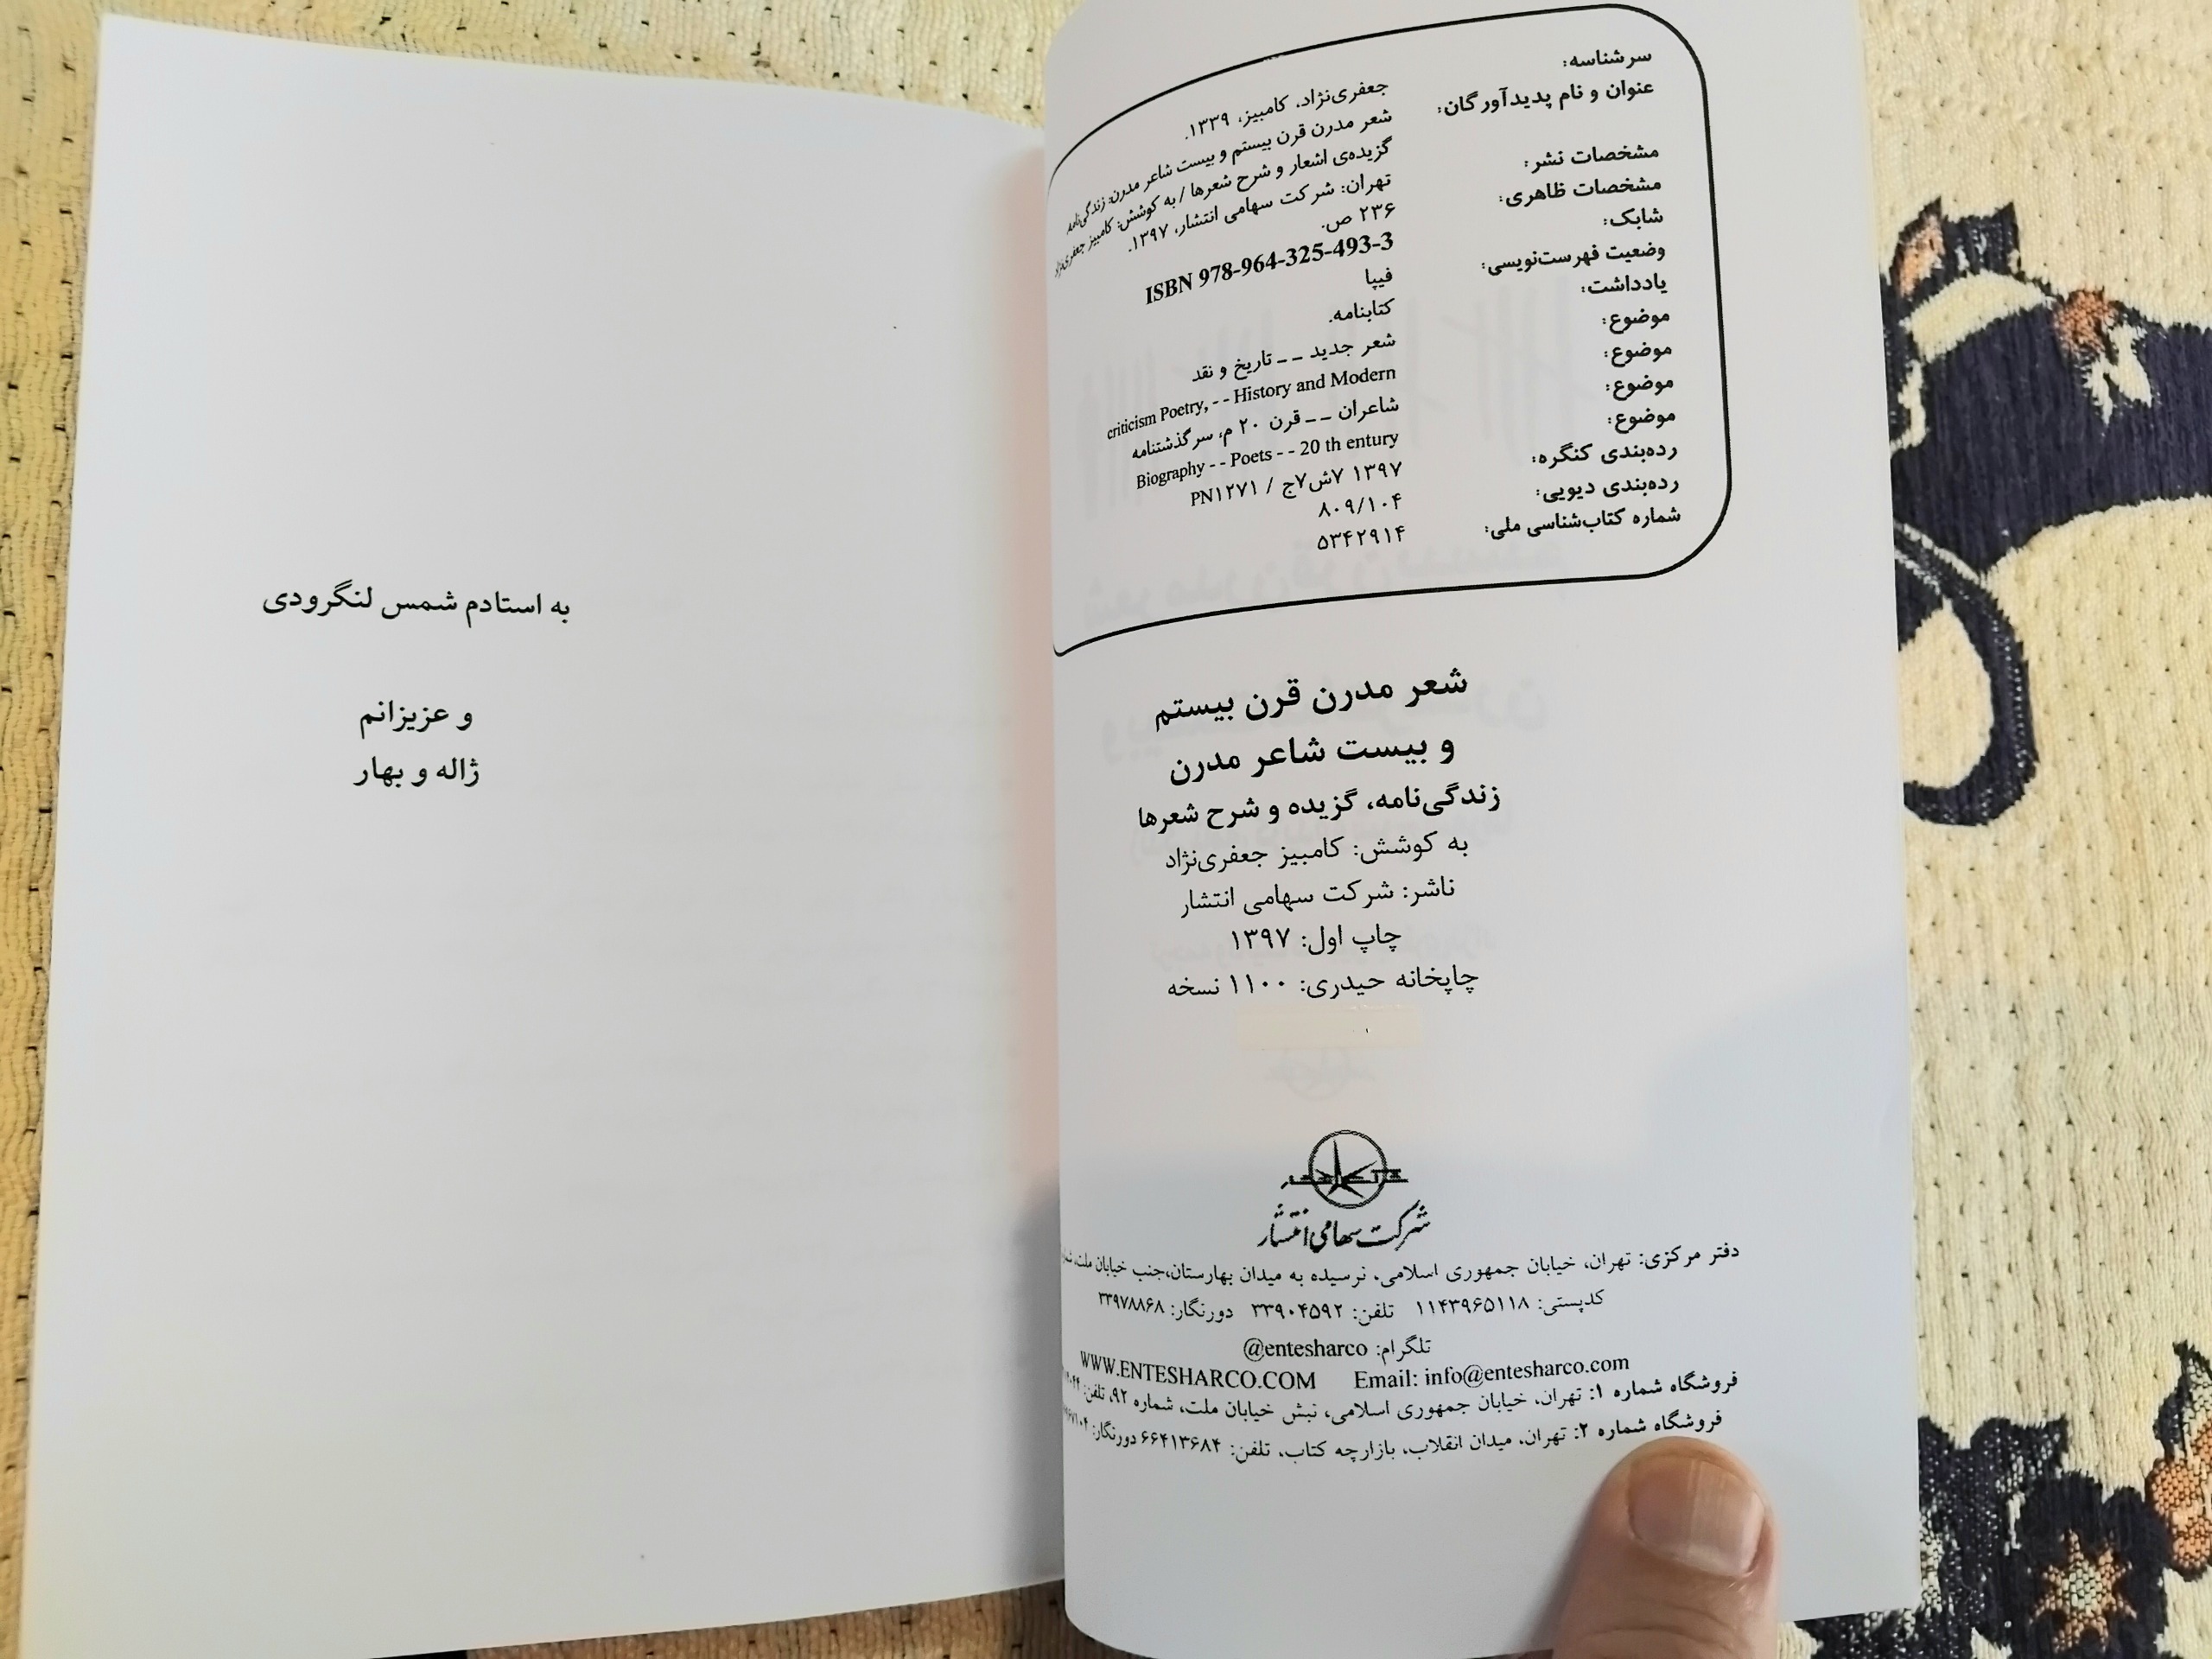 سرشناسه: جعفری‌نژاد، کامبیز، ۱۳۳۹.
عنوان و نام پدیدآورگان: شعر مدرن قرن بیستم و بیست شاعر مدرن: زندگی‌نامه
گزیده‌ی اشعار و شرح شعرها / به کوشش: کامبیز جعفری‌نژاد
مشخصات نشر: تهران: شرکت سهامی انتشار، ۱۳۹۷.
مشخصات ظاهری: ۲۳۶ ص.
شابک: ISBN 978-964-325-493-3
وضعیت فهرست‌نویسی: فیپا
یادداشت: کتابنامه.
موضوع: شعر جدید -- تاریخ و نقد
موضوع: criticism Poetry, -- History and Modern
موضوع: شاعران -- قرن ۲۰ م، سرگذشتنامه
موضوع: Biography -- Poets -- 20 th entury
رده‌بندی کنگره: ۱۳۹۷ ۷ش۷ج / PN۱۲۷۱
رده‌بندی دیویی: ۸۰۹/۱۰۴
شماره کتاب‌شناسی ملی: ۵۳۴۲۹۱۴
شعر مدرن قرن بیستم
و بیست شاعر مدرن
زندگی‌نامه، گزیده و شرح شعرها
به کوشش: کامبیز جعفری‌نژاد
ناشر: شرکت سهامی انتشار
چاپ اول: ۱۳۹۷
چاپخانه حیدری: ۱۱۰۰ نسخه
شرکت سهامی انتشار
دفتر مرکزی: تهران، خیابان جمهوری اسلامی، نرسیده به میدان بهارستان،جنب خیابان ملت،
کدپستی: ۱۱۴۳۹۶۵۱۱۸ تلفن: ۳۳۹۰۴۵۹۲ دورنگار: ۳۳۹۷۸۸۶۸
تلگرام: @entesharco
WWW.ENTESHARCO.COM Email: info@entesharco.com
فروشگاه شماره ۱: تهران، خیابان جمهوری اسلامی، نبش خیابان ملت، شماره ۹۲، تلفن:
فروشگاه شماره ۲: تهران، میدان انقلاب، بازارچه کتاب، تلفن: ۶۶۴۱۳۶۸۴ دورنگار:
به استادم شمس لنگرودی
و عزیزانم
ژاله و بهار